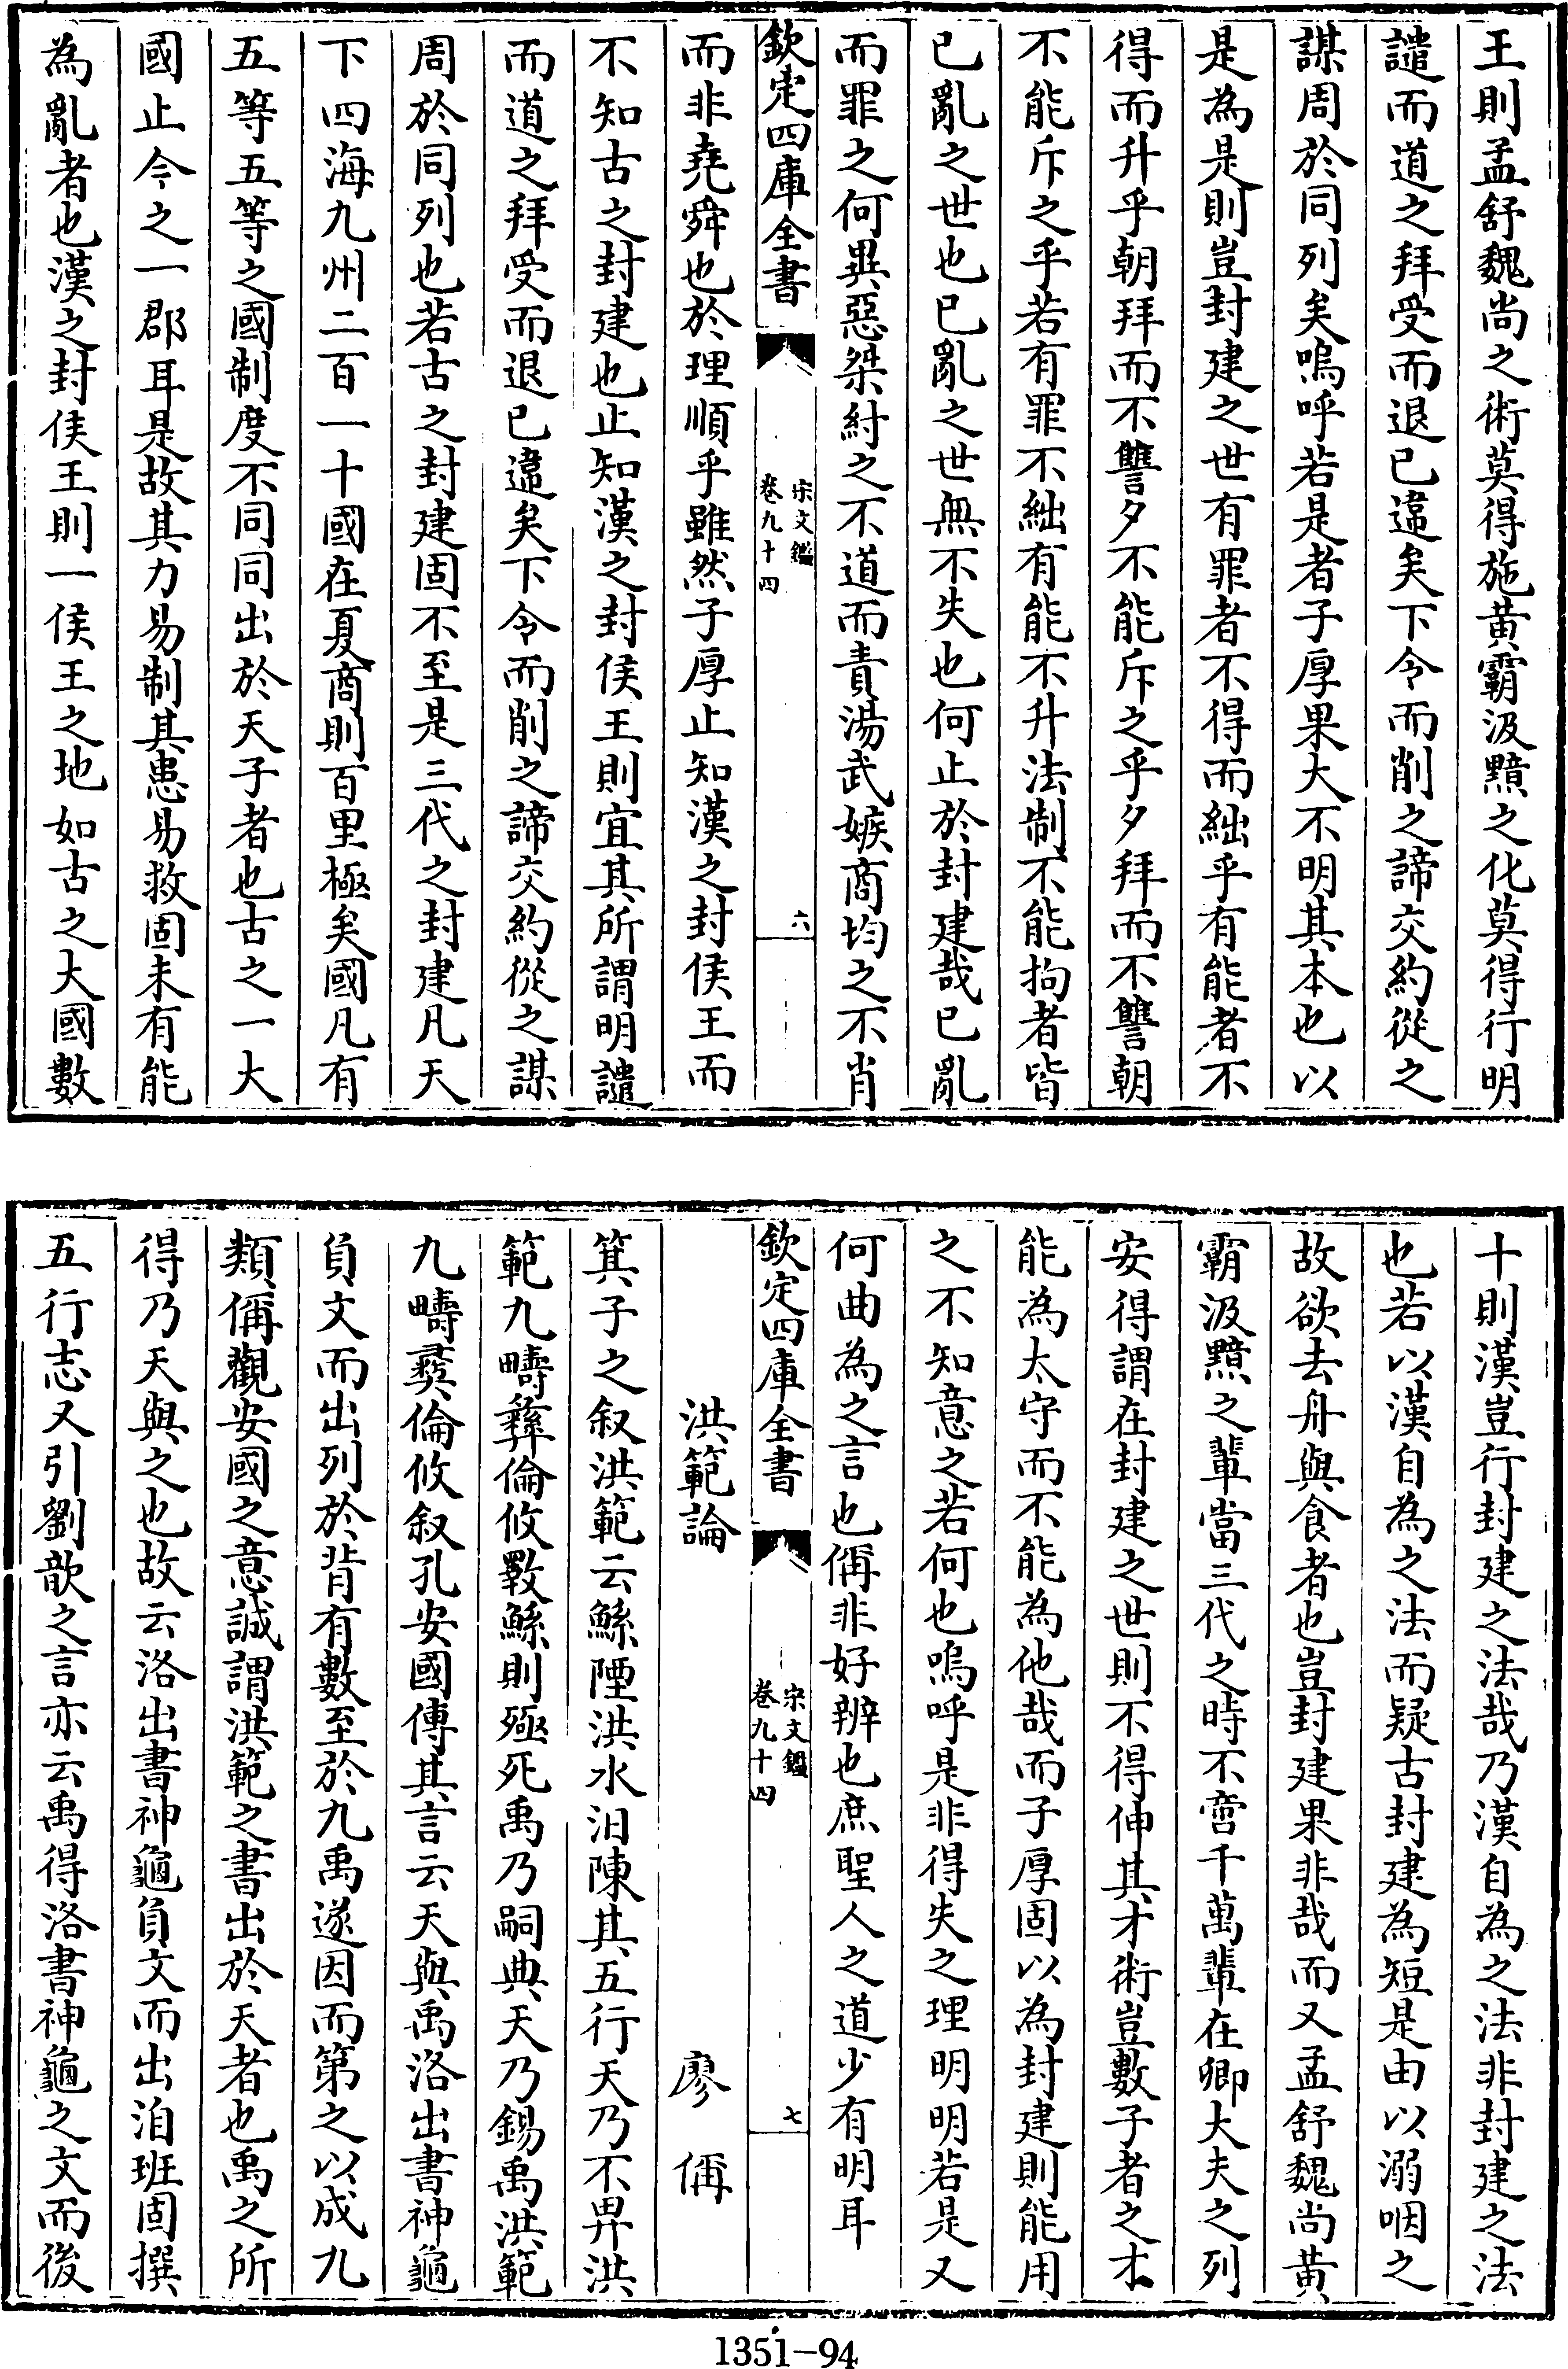 王則孟舒魏尚之術莫得施黄霸汲黯之化莫得行明
譴而道之拜受而退已違矣下令而削之諦交約從之
謀周於同列矣嗚呼若是者子厚果大不明其本也以
是為是則豈封建之世有罪者不得而絀乎有能者不
得而升乎朝拜而不讐夕不能斥之乎夕拜而不讐朝
不能斥之乎若有罪不絀有能不升法制不能拘者皆
已亂之世也已亂之世無不失也何止於封建哉已亂
而罪之何異惡桀紂之不道而責湯武嫉商均之不肖
欽定四庫全書
宋文鑑
卷九十四
六
而非堯舜也於理順乎雖然子厚止知漢之封侯王而
不知古之封建也止知漢之封侯王則宜其所謂明譴
而道之拜受而退已違矣下令而削之諦交約從之謀
周於同列也若古之封建固不至是三代之封建凡天
下四海九州二百一十國在夏商則百里極矣國凡有
五等五等之國制度不同同出於天子者也古之一大
國止今之一郡耳是故其力易制其患易救固未有能
為亂者也漢之封侯王則一侯王之地如古之大國數
十則漢豈行封建之法哉乃漢自為之法非封建之法
也若以漢自為之法而疑古封建為短是由以溺咽之
故欲去舟與食者也豈封建果非哉而又孟舒魏尚黄
霸汲黯之輩當三代之時不啻千萬輩在卿大夫之列
安得謂在封建之世則不得伸其才術豈數子者之才
能為太守而不能為他哉而子厚固以為封建則能用
之不知意之若何也嗚呼是非得失之理明明若是又
何曲為之言也偁非好辨也庶聖人之道少有明耳
欽定四庫全書
宋文鑑
卷九十四
七
洪範論　　廖偁
箕子之叙洪範云鯀陻洪水汩陳其五行天乃不畀洪
範九疇彝倫攸斁鯀則殛死禹乃嗣典天乃錫禹洪範
九疇彛倫攸叙孔安國傳其言云天與禹洛出書神龜
負文而出列於背有數至於九禹遂因而第之以成九
類偁觀安國之意誠謂洪範之書出於天者也禹之所
得乃天與之也故云洛出書神龜負文而出洎班固撰
五行志又引劉歆之言亦云禹得洛書神龜之文而後
1351-94